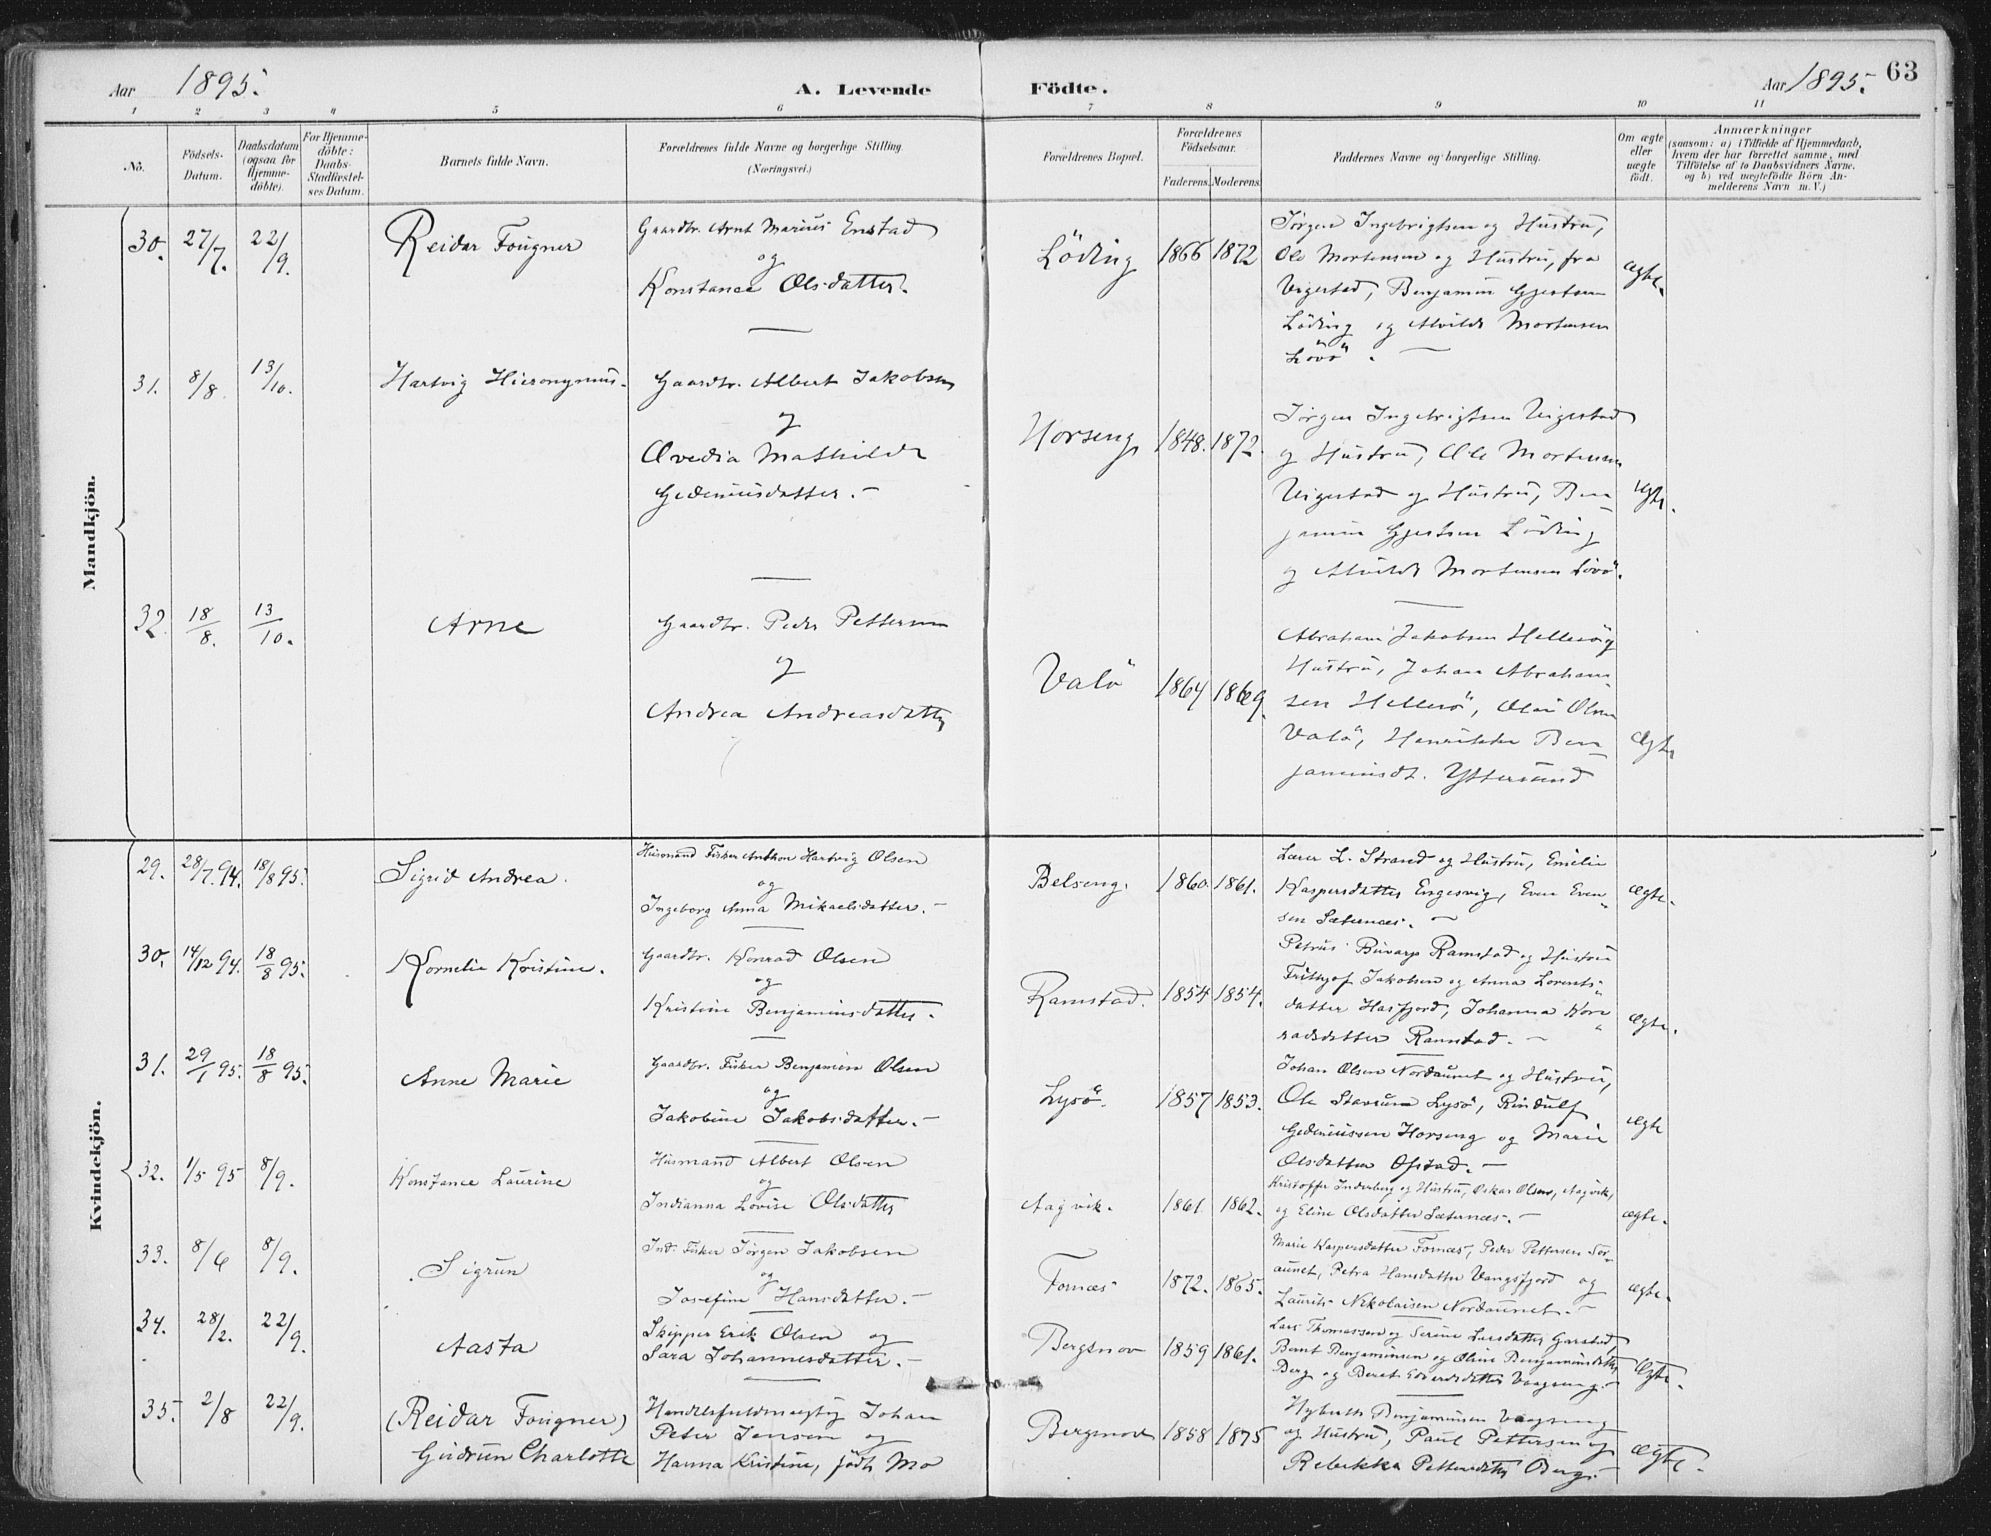 Aar 1895. A. Levende Födte. Aar 1895. 63
1 2 3 4 5 6 7 8 9 10 11
No. Födsels-Datum. Daabsdatum (ogsaa for Hjemmedöbte). For Hjemmedöbte: Daabs-Stadfæstelses Datum. Barnets fulde Navn. Forældrenes fulde Navne og borgerlige Stilling. (Næringsvei.) Forældrenes Bopæl. Forældrenes Födselsaar. Faderens. Moderens. Faddernes Navne og borgerlige Stilling. Om ægte eller uægte födt. Anmærkninger
(saasom: a) i Tilfælde af Hjemmedaab,
hvem der har forrettet samme, med
Tilföielse af to Daabsvidners Navne.
og b) ved uægtefödte Börn An-
melderens Navn m. V.)
Mandkjön.
30. 27/7. 22/9. Reidar Fougner
Gaardbr. Arnt Marius Enstad
og
Konstance Olsdatter.
Löding 1866 1872
Jörgen Ingebrigtsen og Hustru,
Ole Mortensen og Hustru, fra
Vigestad, Benjamin Gjertsen
Löding og Alvilde Mortensen
Lövö. —
ægte.
31. 8/8. 13/10. Hartvig Hieronymus.
Gaardbr. Albert Jakobsen
og
Ovedia Mathilde
Gedeniusdatter. —
Horseng 1848. 1872.
Jörgen Ingebrigtsen Vigestad
og Hustru, Ole Mortensen
Vigestad og Hustru, Ben-
jamin Gjertsen Löding
og Alvilde Mortensen Lövö.
ægte.
32. 18/8. 13/10. Arne
Gaardbr. Peder Pettersen
og
Andrea Andreasdatter
Valö 1864 1869.
Abraham Jakobsen Hellesö og
Hustru, Johan Abraham-
sen Hellesö, Olai Olsen
Valö, Henrikke Ben-
jaminsdt. Yttersund
Ægte
Kvindekjön.
29. 28/7 94. 18/8 95. Sigrid Andrea.
Husmand Fisker Anthon Hartvig Olsen
og
Ingeborg Anna Mikaelsdatter. —
Belseng. 1860. 1861.
Lærer L. Strand og Hustru, Emelie
Kaspersdatter Engesvig, Even Even-
sen Sæternæs. —
Ægte.
30. 14/12 94. 18/8 95. Kornelie Kristine.
Gaardbr. Konrad Olsen
og
Kristine Benjaminsdatter.
Ramstad. 1854 1854.
Petrus Buvarp Ramstad og Hustru
Frithjof Jakobsen og Anna Lorents-
datter Hasfjord, Johanna Kon-
radsdatter Ramstad. —
Ægte.
31. 29/1 95. 18/8 95. Anne Marie
Gaardbr. Fisker Benjamin Olsen
og
Jakobine Jakobsdatter. —
Lysö. 1857 1853.
Johan Olsen Nordaunet og Hustru,
Ole Stavrum Lysö, Rindulf
Gedeniussen Horseng og Marie
Olsdatter Ofstad. —
Ægte
32. 1/5 95 8/9. Konstance Laurine
Husmand Albert Olsen
og
Indianna Lovise Olsdatter
Aagvik. 1861. 1862.
Kristoffer Inderberg og Hustru, Oskar Olsen, Aagvik,
og Eline Olsdatter Sæternæs. —
ægte.
33. 8/6 8/9. Sigrun
Ind. Fisker Jörgen Jakobsen
og
Josefine Hansdatter. —
Fornæs 1872. 1865.
Marie Kaspersdatter Fornæs, Peder Pettersen Nor-
aunet, Petra Hansdatter Vangsfjord og
Laurits Nikolaisen Nordaunet. —
ægte.
34. 28/2. 22/9. Aasta
Skipper Erik Olsen og
Sara Johannesdatter. —
Bergsnov 1859 1861.
Lars Thomassen og Serine Larsdatter Garstad,
Bernt Benjaminsen og Oline Benjaminsdatter
Berg og Beret Edvardsdatter Vaagseng. —
Ægte.
35. 2/8 22/9. (Reidar Fougner)
Gudrun Charlotte
Handelsfuldmægtig Johan
Peter Jensen og
Hanna Kristine, födt Mo
Bergsnov 1858 1875
Benjaminsen Vaagseng
og Hustru, Paul Pettersen og
Rebekka Pettersdatter Berg. —
Ægte.